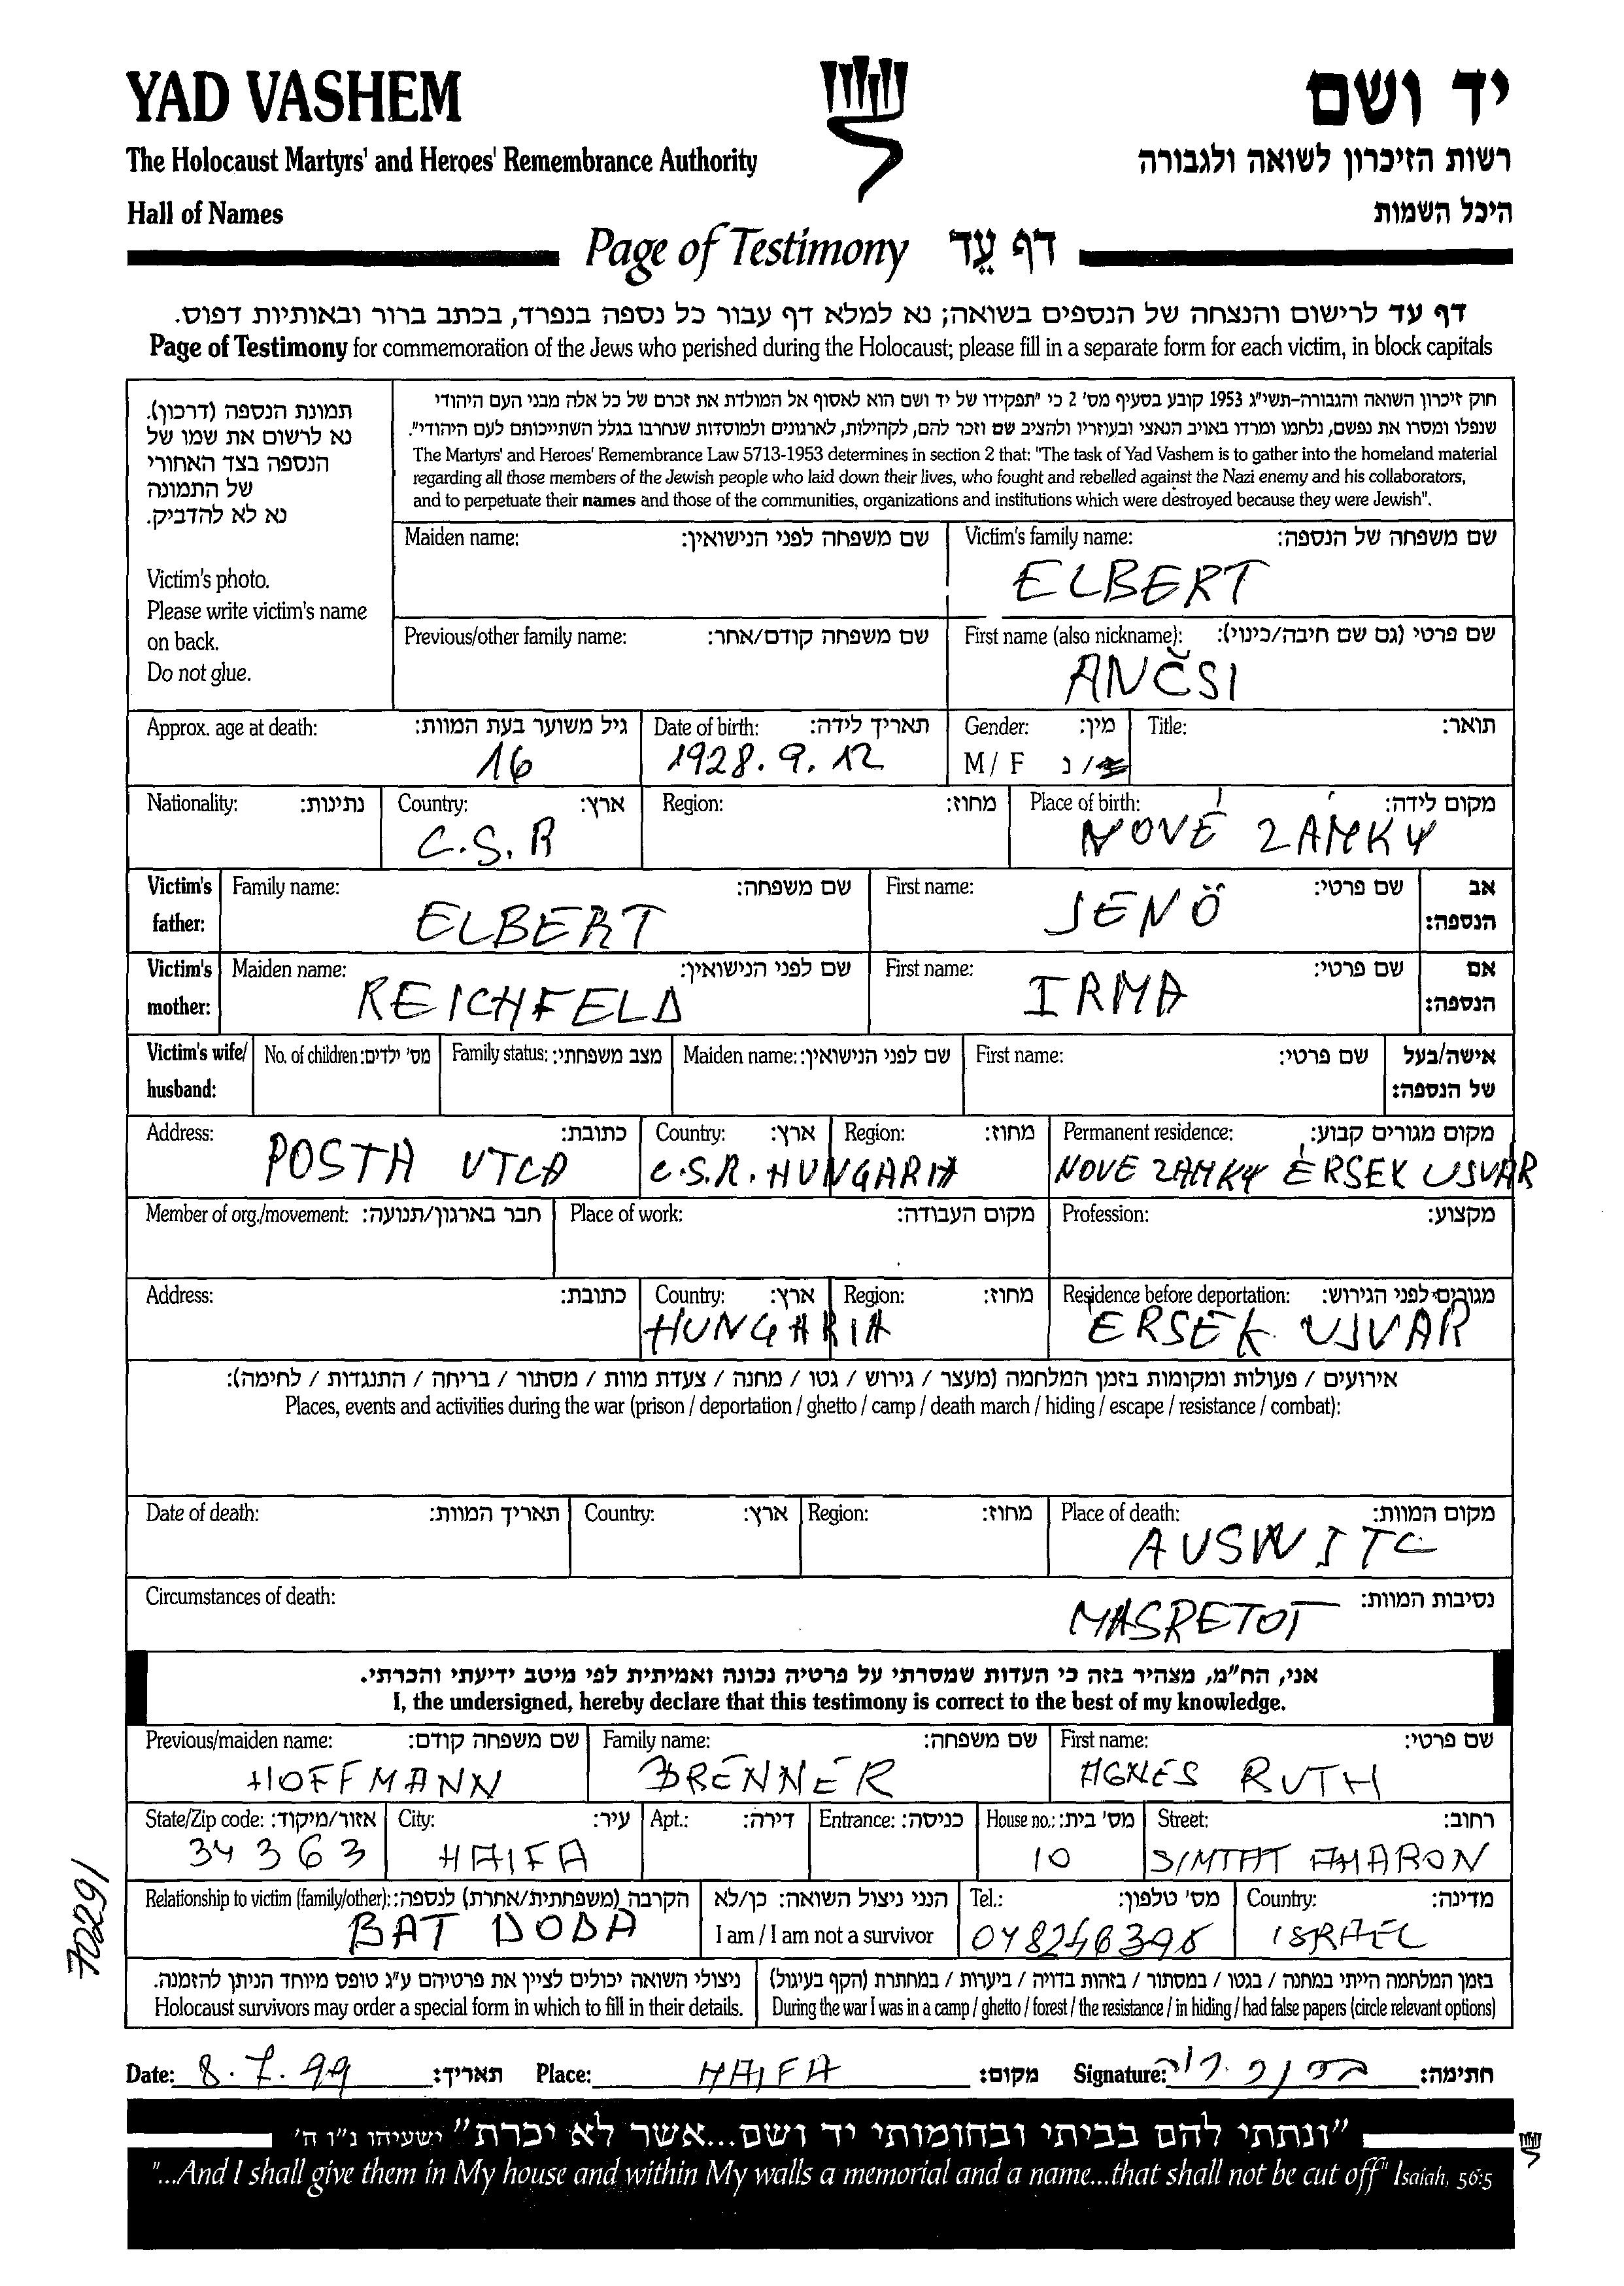 YAD VASHEM
יד ושם
The Holocaust Martyrs' and Heroes' Remembrance Authority
רשות הזיכרון לשואה ולגבורה
Hall of Names
היכל השמות
Page of Testimony דף עֵד
דף עד לרישום והנצחה של הנספים בשואה; נא למלא דף עבור כל נספה בנפרד, בכתב ברור ובאותיות דפוס.
Page of Testimony for commemoration of the Jews who perished during the Holocaust; please fill in a separate form for each victim, in block capitals
תמונת הנספה (דרכון).
נא לרשום את שמו של
הנספה בצד האחורי
של התמונה
נא לא להדביק.
Victim's photo.
Please write victim's name
on back.
Do not glue.
חוק זיכרון השואה והגבורה-תשי"ג 1953 קובע בסעיף מס' 2 כי "תפקידו של יד ושם הוא לאסוף אל המולדת את זכרם של כל אלה מבני העם היהודי
שנפלו ומסרו את נפשם, נלחמו ומרדו באויב הנאצי ובעוזריו ולהציב שם וזכר להם, לקהילות, לארגונים ולמוסדות שנחרבו בגלל השתייכותם לעם היהודי".
The Martyrs' and Heroes' Remembrance Law 5713-1953 determines in section 2 that: "The task of Yad Vashem is to gather into the homeland material
regarding all those members of the Jewish people who laid down their lives, who fought and rebelled against the Nazi enemy and his collaborators,
and to perpetuate their names and those of the communities, organizations and institutions which were destroyed because they were Jewish".
Maiden name: שם משפחה לפני הנישואין:
Victim's family name: שם משפחה של הנספה:
ELBERT
Previous/other family name: שם משפחה קודם/אחר:
First name (also nickname): שם פרטי (גם שם חיבה/כינוי):
ANČSI
Approx. age at death: גיל משוער בעת המוות:
16
Date of birth: תאריך לידה:
1928. 9. 12
Gender: מין:
M / F נ /
Title: תואר:
Nationality: נתינות:
Country: ארץ:
C.S.R
Region: מחוז:
Place of birth: מקום לידה:
NOVÉ ZÁMKY
Victim's father: Family name: שם משפחה:
ELBERT
First name: שם פרטי:
JENÖ
אב הנספה:
Victim's mother: Maiden name: שם לפני הנישואין:
REICHFELD
First name: שם פרטי:
IRMA
אם הנספה:
Victim's wife/ husband: No. of children: מס' ילדים: Family status: מצב משפחתי: Maiden name: שם לפני הנישואין: First name: שם פרטי: אישה/בעל של הנספה:
Address: כתובת:
POSTA UTCA
Country: ארץ: Region: מחוז:
C.S.R. HUNGARIA
Permanent residence: מקום מגורים קבוע:
NOVE ZAMKY ÉRSEK UJVAR
Member of org./movement: חבר בארגון/תנועה: Place of work: מקום העבודה: Profession: מקצוע:
Address: כתובת: Country: ארץ: Region: מחוז:
HUNGARIA
Residence before deportation: מגורים לפני הגירוש:
ERSEK UJVAR
אירועים / פעולות ומקומות בזמן המלחמה (מעצר / גירוש / גטו / מחנה / צעדת מוות / מסתור / בריחה / התנגדות / לחימה):
Places, events and activities during the war (prison / deportation / ghetto / camp / death march / hiding / escape / resistance / combat):
Date of death: תאריך המוות: Country: ארץ: Region: מחוז: Place of death: מקום המוות:
AUSWITC
Circumstances of death: נסיבות המוות:
MASRETOT
אני, הח"מ, מצהיר בזה כי העדות שמסרתי על פרטיה נכונה ואמיתית לפי מיטב ידיעתי והכרתי.
I, the undersigned, hereby declare that this testimony is correct to the best of my knowledge.
Previous/maiden name: שם משפחה קודם:
HOFFMANN
Family name: שם משפחה:
BRENNER
First name: שם פרטי:
AGNES RUTH
State/Zip code: אזור/מיקוד:
34 363
City: עיר:
HAIFA
Apt.: דירה: Entrance: כניסה: House no.: מס' בית:
10
Street: רחוב:
SIMTAT AHARON
Relationship to victim (family/other): הקרבה (משפחתית/אחרת) לנספה:
BAT DODA
הנני ניצול השואה: כן/לא
I am / I am not a survivor
Tel.: מס' טלפון:
Country: מדינה:
ISRAEL
ניצולי השואה יכולים לציין את פרטיהם ע"ג טופס מיוחד הניתן להזמנה.
Holocaust survivors may order a special form in which to fill in their details.
בזמן המלחמה הייתי במחנה / בגטו / במסתור / בזהות בדויה / ביערות / במחתרת (הקף בעיגול)
During the war I was in a camp / ghetto / forest / the resistance / in hiding / had false papers (circle relevant options)
70291
Date: 8.7.99 תאריך: Place: HAIFA מקום: Signature: חתימה:
"ונתתי להם בביתי ובחומותי יד ושם...אשר לא יכרת" ישעיהו נ"ו ה'
"...And I shall give them in My house and within My walls a memorial and a name...that shall not be cut off" Isaiah, 56:5